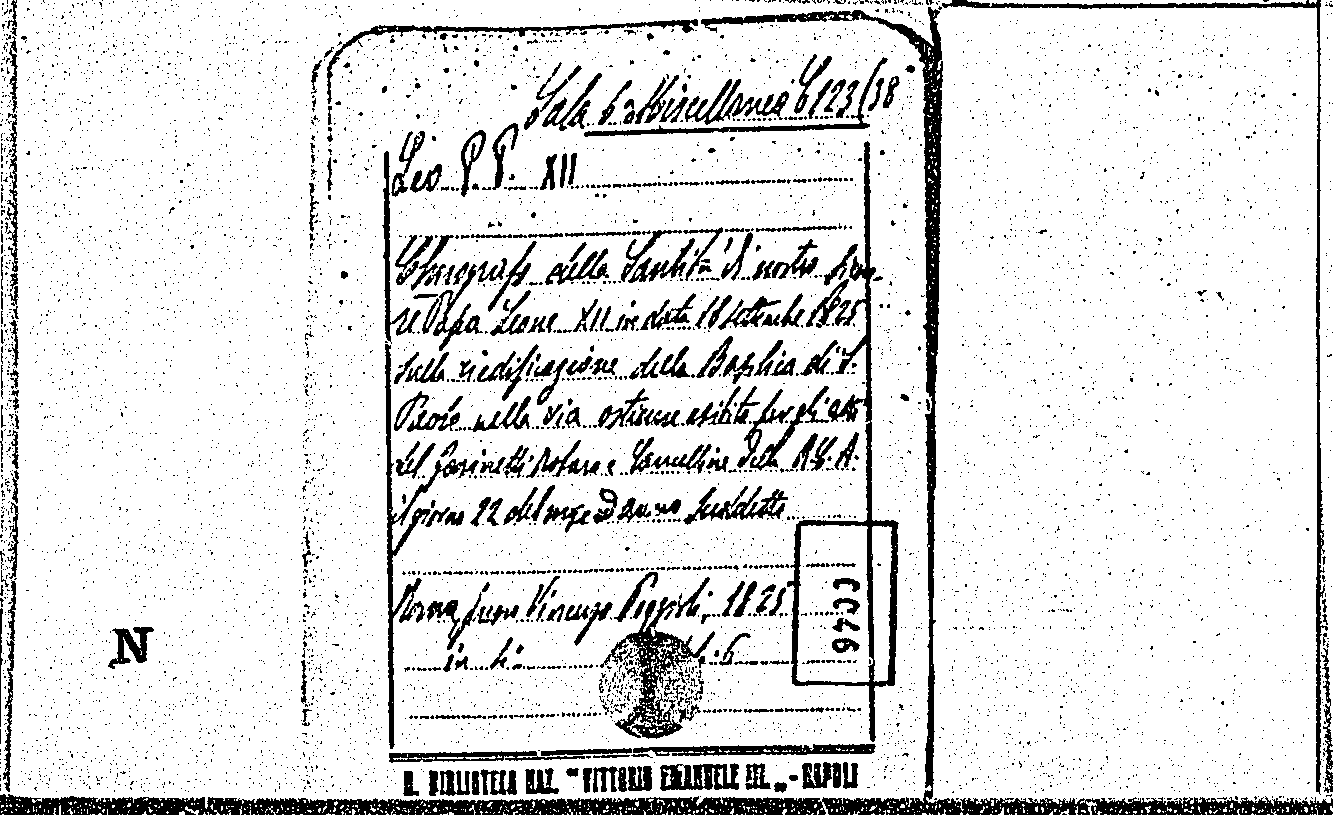 Sala 6a Miscellanea C 123/38
Leo P. P. XII
Chirografo della Santità di nostro Signo-
re Papa Leone XII in data 18 settembre 1825
sulla riedificazione della Basilica di S.
Paolo nella via ostiense esibito per gli atti
del Notaro e Cancelliere della R.C.A.
il giorno 22 del mese d anno suddetto
Roma, Vincenzo Poggioli, 1825
in
6
N
R. BIBLIOTECA NAZ. "VITTORIO EMANUELE III." - NAPOLI